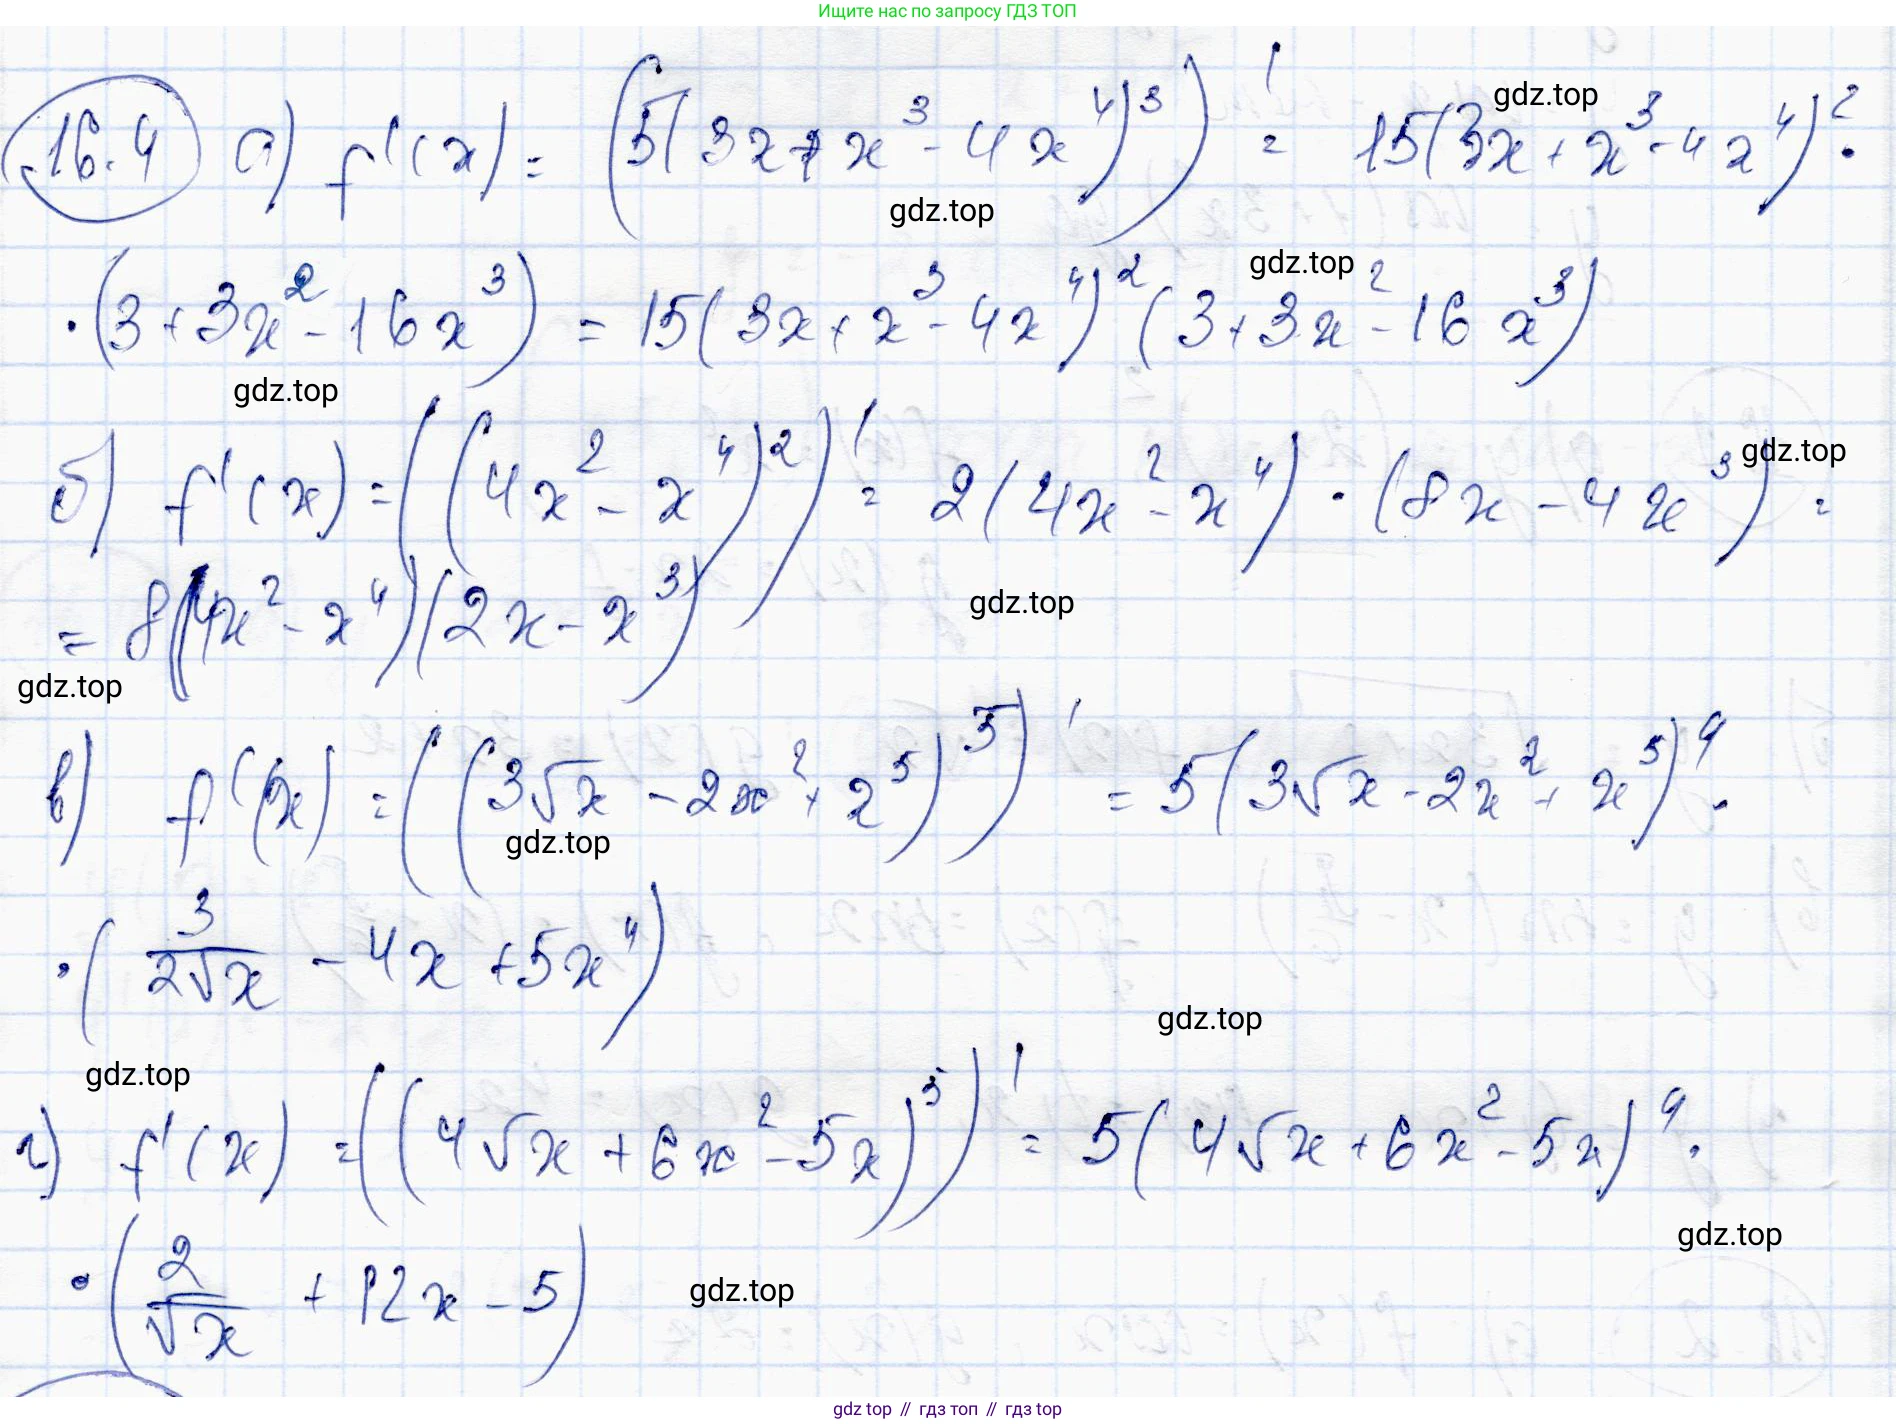 Ищите нас по запросу ГДЗ ТОП
16.4 а) f'(x) = (5(3x + x³ - 4x⁴)³)' = 15(3x + x³ - 4x⁴)² ·
gdz.top
gdz.top
· (3 + 3x² - 16x³) = 15(3x + x³ - 4x⁴)² (3 + 3x² - 16x³)
gdz.top
gdz.top
б) f'(x) = ((4x² - x⁴)²)' = 2(4x² - x⁴) · (8x - 4x³) =
gdz.top
= 8(4x² - x⁴)(2x - x³)
gdz.top
gdz.top
в) f'(x) = ((3√x - 2x² + x⁵)⁵)' = 5(3√x - 2x² + x⁵)⁴ ·
gdz.top
· (3/(2√x) - 4x + 5x⁴)
gdz.top
gdz.top
г) f'(x) = ((4√x + 6x² - 5x)⁵)' = 5(4√x + 6x² - 5x)⁴ ·
gdz.top
· (2/√x + 12x - 5)
gdz.top
gdz top // гдз топ // гдз top